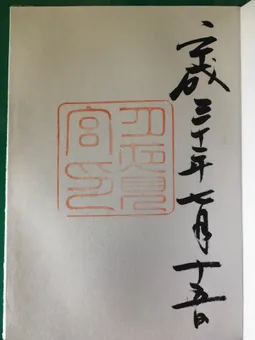 平成三十年七月十五日
宮印